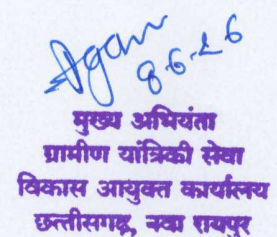 8-6-26
मुख्य अभियंता
ग्रामीण यांत्रिकी सेवा
विकास आयुक्त कार्यालय
छत्तीसगढ़, नवा रायपुर